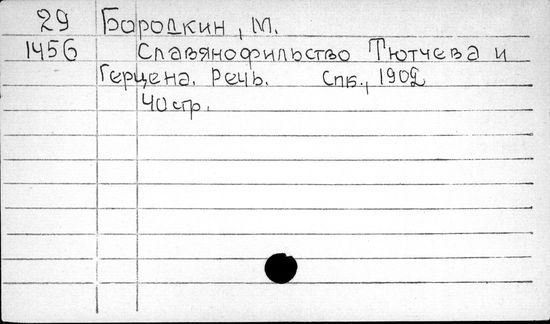 29 Бородкин, М.
1456 Славянофильство Тютчева и
Герцена. Речь. Спб., 1902
40 стр.